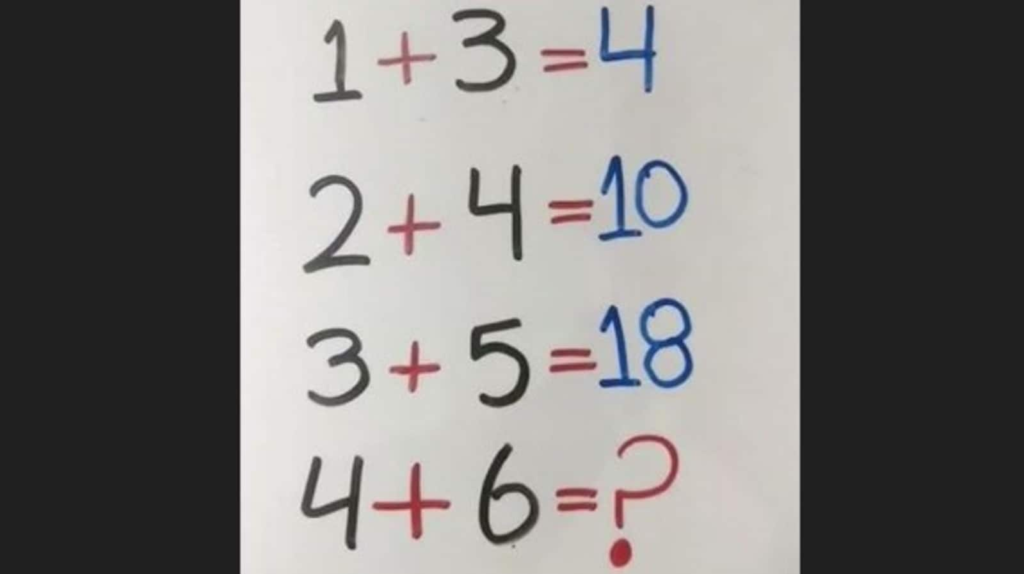 1+3=4
2+4=10
3+5=18
4+6=?